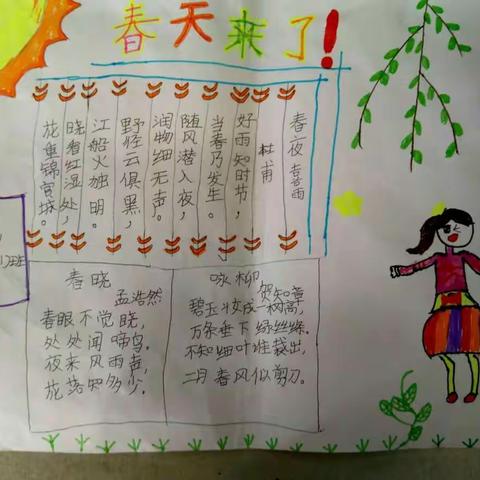 春天来了!
春夜喜雨
杜甫
好雨知时节，
当春乃发生。
随风潜入夜，
润物细无声。
野径云俱黑，
江船火独明。
晓看红湿处，
花重锦官城。
春晓
孟浩然
春眼不觉晓，
处处闻啼鸟。
夜来风雨声，
花落知多少。
咏柳
贺知章
碧玉妆成一树高，
万条垂下绿丝绦。
不知细叶谁裁出，
二月春风似剪刀。